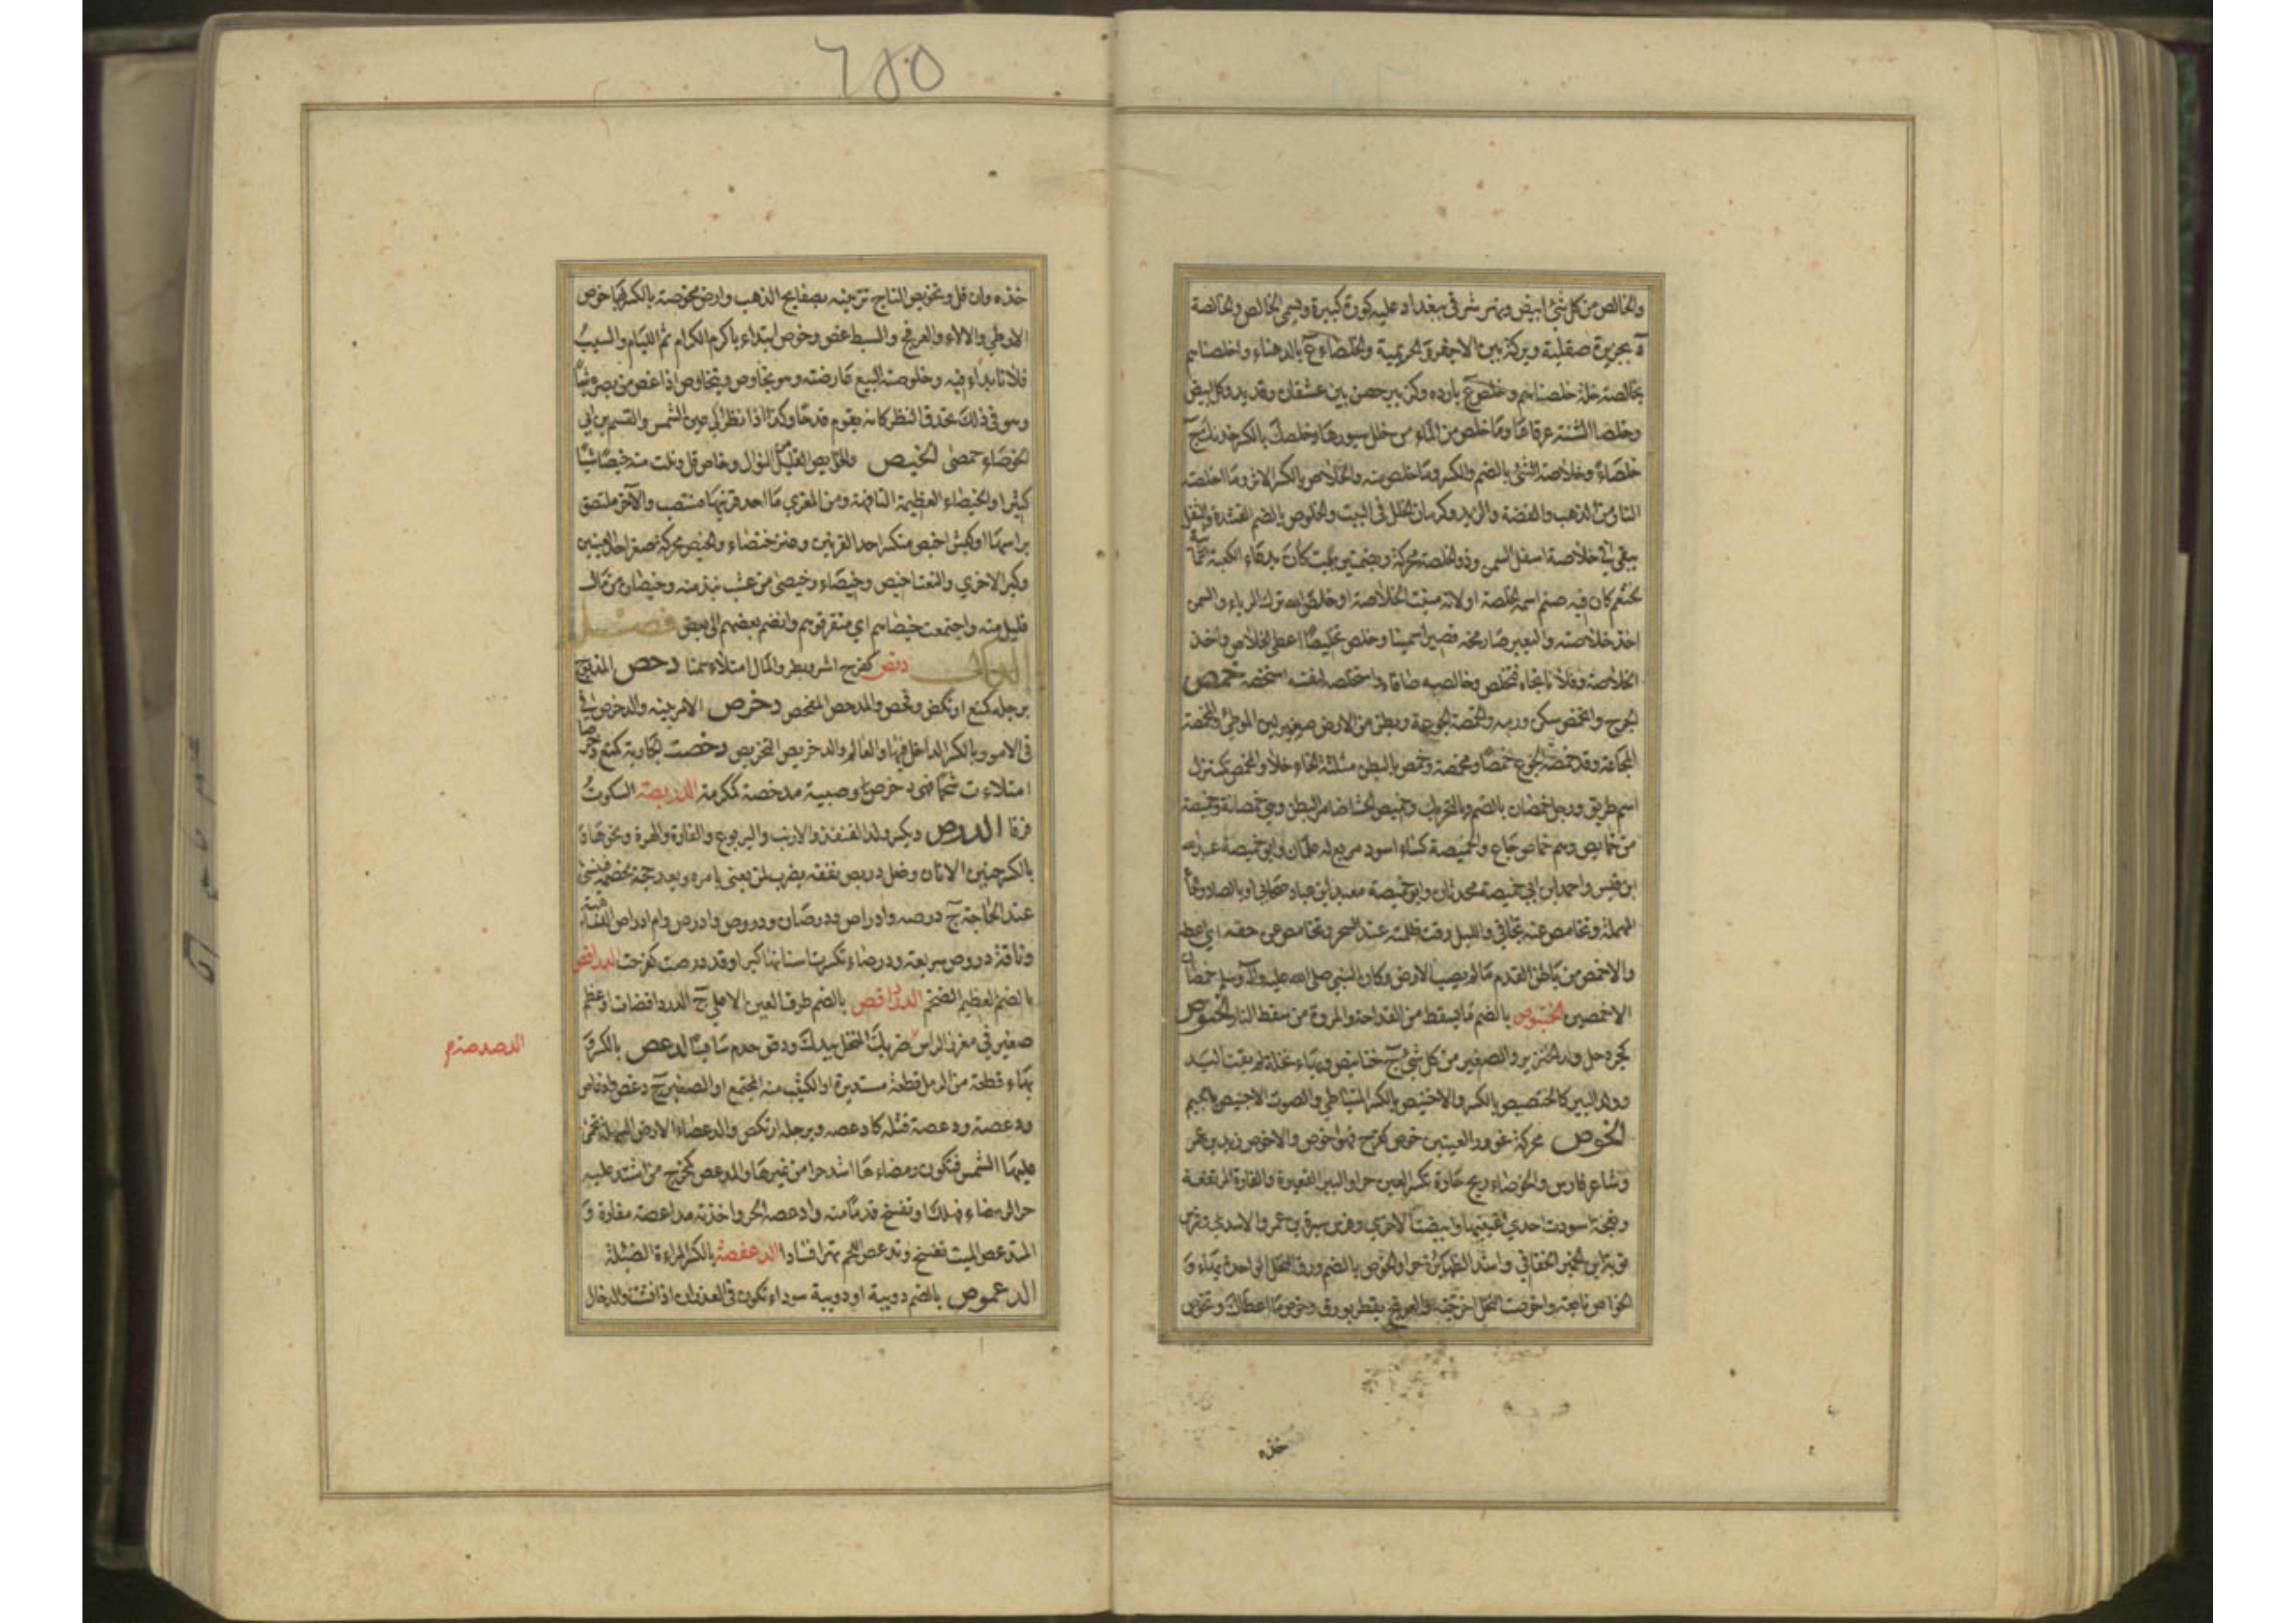 والخالص من كل شئ ابيض ونهر شرقى بغداد عليه كورة كبيرة ويسمى الخالص والخالصة
ة بجزيرة صقلية وبركة بين الاجفر والخزيمية والخلصاء ع بالدهناء واخلصناهم
بخالصة خلة خلصناهم وخلص ع باره وكزبير حصن بين عسفان وقديد وكل ابيض
وخلصا الشنة عرقاها وما خلص من الماء من خلل سيورها وخلصك بالكسر خدنك ج
خلصاء وخلاصة الشئ بالضم والكسر وما خلص منه والخلاص بالكسر الاثر وما اخلصته
النار من الذهب والفضة والزبد وكرمان الخلل فى البيت والخلوص بالضم القشدة والثفل
يبقى فى خلاصة اسفل السمن وذو الخلصة محركة وبضمتين بيت كان يدعاء الكعبة اليمانية
لخثعم كان فيه صنم اسمه الخلصة اولانه منبت الخلاصة واخلص لله ترك الرياء والسمن
اخذ خلاصته والبعير صار مخه قصيرا سمينا وخلص تخليصا اعطى الخلاص واخذ
الخلاصة وفلانا نجاه فتخلص وخالصه صافاه واستخلصه لنفسه استخصه خمص
الجرح وانخمص سكن ورمه والخمصة الجوعة وبطن من الارض صغير لين الموطئ والمخمصة
المجاعة وقد خمصه الجوع خمصا ومخمصة وخمص البطن مثلثة الخاء خلا والمخمص كمنزل
اسم طريق ورجل خمصان بالضم وبالتحريك وخميص الحشا ضامر البطن وهى خمصانة وخميصة
من خمايص وهم خماص جياع والخميصة كساء اسود مربع له علمان وابو خميصة عبد الله
ابن قيس واحمد ابن ابى خميصة محدثان وابو خميصة معبد ابن عباد صحابى او بالضاد وثما
المهملة وتخامص عنه تجافى والليل رقت ظلمته عند السحر وتخامص عن حقه اى اعطه
والاخمص من باطن القدم ما لم يصب الارض وكان النبى صلى الله عليه وآله وسلم خمصان
الاخمصين الخنبوص بالضم ما يسقط من القداحة والمروة من سقط النار الخنوص
كجردحل ولد الخنزير والصغير من كل شئ ج خنانيص وبهاء نخلة لم يفت اليد
وولد الببر كالخنصيص بالكسر والاخنيص بالكسر المتباطى والصوت الاجنيص بالجيم
الخوص محركة غوور العينين خوص كفرح فهو اخوص والاخوص زيد بن عمر
وشاعر فارس والخوصاء ريح حارة تكسر العين حرا والبير القعيرة والقارة المرتفعة
ونعجة اسودت احدى عينيها وابيضت الاخرى وفرس سبرة بن عمر والاسدى وفرس
توبة ابن الحمير الخفاجى واشد الظهاير حرا والخوص بالضم ورق النخل الواحدة بهاء و
الخواص بايعه واخوصت النخل اخرجته والعرفج تفطر بورق وخوص ما اعطاك وتخوص
خذه
خذه وان قل وتخويص التاج تزيينه بصفايح الذهب وارض مخوصة بالكسر بها خوص
الارطى والالاء والعرفج والسبط غض وخوص ابتداء باكرام الكرام ثم اللئام والسيب
فلانا بداء فيه وخلوصته البيع عارضته وهو يخاوص ويتخاوص اذا غض من بصره شيئا
وهو فى ذلك يحدق النظر كانه يقوم قدحا وكذا اذا نظر الى عين الشمس والقسم بن ابى
الخوصاء حمصى الخيص والخايص القليل من النوال وخاص قل ونلت منه خيصا شيئا
كثيرا والخيصاء العظيمة التافهة ومن المعزى ما احد قرنيها منتصب والآخر ملتصق
براسها وكبش اخيص منكسر احد القرنين وعنز خيصاء والخيص محركة صغر احد العينين
وكبر الاخرى والنعت اخيص وخيصاء وخيصى من عشب نبذ منه وخيصان من مال
قليل منه واجتمعت خيصاهم اى متفرقوهم وانضم بعضهم الى بعض فصل
الدال دئص كفرح اشر وبطر والمال امتلاء سمنا دحص المذبوح
برجله كمنع ارتكض وفحص والمدحص المفحص دخرص الامر بينه والدخرص فى
فى الامور وبالكسر الداخل فيها والعالم والدخريص التخريص دخصت الجارية كمنع دخوصا
امتلاءت شحما فهى دخوص وصبية مدخصة كمكرمة الدربصة السكوت
فرقا الدرص ويكسر ولد القنفذ والارنب واليربوع والفارة والهرة ونحوها و
بالكسر جنين الاتان وضل دريص نفقه يضرب لمن يعنى بامره ويعد حجة لخصمه فينسى
عند الحاجة ج درصه وادراص ودرصان ودروص وادرص وام ادراص الداهية
وناقة دروص سريعة ودرصاء تكسرت اسنانها كبرا وقد درصت كفرحت الدرافص
بالضم العظيم الضخم الدرداقص بالضم طرف العين الاعلى ج الدرداقصات او عظم
صغير فى مغرز الراس ضربك النخل بيدك ودص خدم سايسا الدعص بالكسر و
بهاء قطعة من الرمل قطعة مستديرة او الكثيب منه المجتمع او الصغير ج دعص وادعاص
ودعصة ودعصه قتله كادعصه وبرجله ارتكض والدعصاء الارض السهلة تحمى
عليها الشمس فتكون رمضاءها اشد حرا من غيرها والمدعص كمخرج من اشتد عليه
حر الرمضاء فهلك او تفسخ قدماه منه وادعصه الحر واخذته مداعصة مغارة و
المتدعص الميت تفسخ وتدعص اللحم تهراء فسادا الدعفصة بالكسر المراءة الضئيلة
الدعموص بالضم دويبة او دويبة سوداء تكون فى الغدران اذا نشت والدخال
الدصدصة م